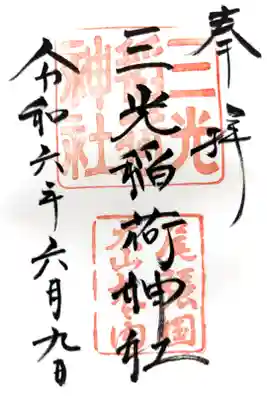 奉拝
三光稲荷神社
令和六年六月九日
三光
稲荷
神社
尾張国
犬山